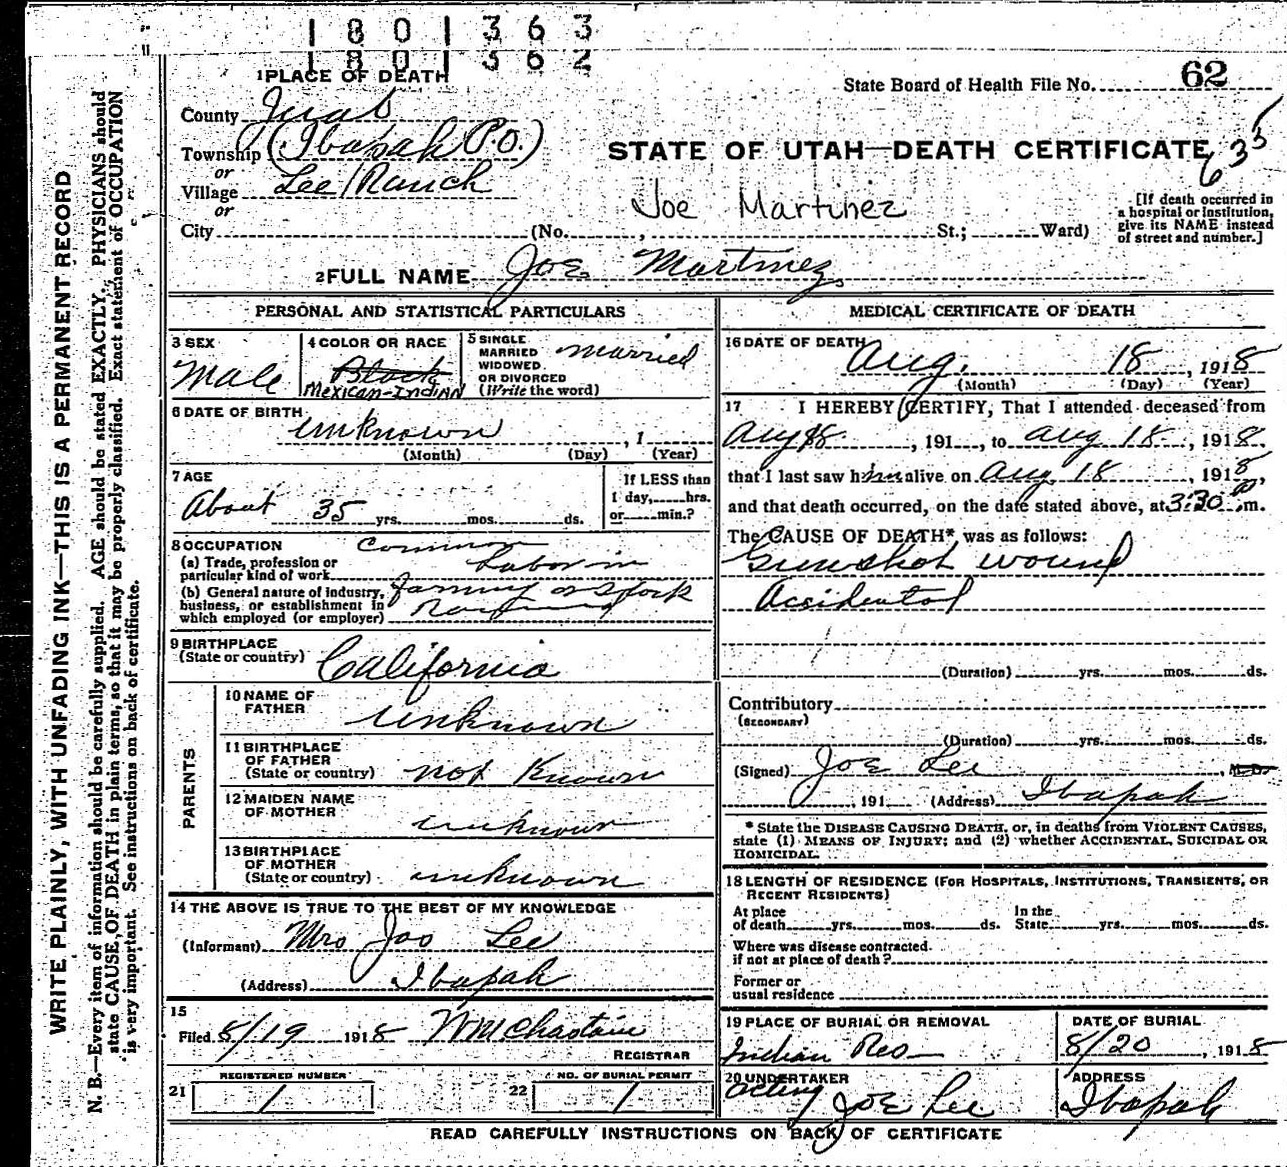 1 8 0 1 3 6 3
1 8 0 1 3 6 2
1 PLACE OF DEATH
State Board of Health File No. 62
County Juab
Township (Ibapah P.O.)
or
Village Lee Ranch
or
City (No. , St.; Ward)
STATE OF UTAH—DEATH CERTIFICATE
635
Joe Martinez
[If death occurred in
a hospital or institution,
give its NAME instead
of street and number.]
2 FULL NAME Joe Martinez
WRITE PLAINLY, WITH UNFADING INK—THIS IS A PERMANENT RECORD
N. B.—Every item of information should be carefully supplied. AGE should be stated EXACTLY. PHYSICIANS should
state CAUSE OF DEATH in plain terms, so that it may be properly classified. Exact statement of OCCUPATION
is very important. See instructions on back of certificate.
PERSONAL AND STATISTICAL PARTICULARS
3 SEX
Male
4 COLOR OR RACE
Black
Mexican-Indian
5 SINGLE
MARRIED
WIDOWED
OR DIVORCED
(Write the word)
Married
6 DATE OF BIRTH
unknown , 1
(Month) (Day) (Year)
7 AGE
About 35 yrs. mos. ds.
If LESS than
1 day, hrs.
or min.?
8 OCCUPATION
(a) Trade, profession or
particular kind of work
Common
Labor in
(b) General nature of industry,
business, or establishment in
which employed (or employer)
farming or stock
9 BIRTHPLACE
(State or country)
California
PARENTS
10 NAME OF
FATHER
unknown
11 BIRTHPLACE
OF FATHER
(State or country)
not Known
12 MAIDEN NAME
OF MOTHER
unknown
13 BIRTHPLACE
OF MOTHER
(State or country)
unknown
14 THE ABOVE IS TRUE TO THE BEST OF MY KNOWLEDGE
(Informant) Mrs Joe Lee
(Address) Ibapah
15
Filed 8/19 1918 Wm Chastain
REGISTRAR
REGISTERED NUMBER
21 1
NO. OF BURIAL PERMIT
22 1
MEDICAL CERTIFICATE OF DEATH
16 DATE OF DEATH
Aug. 18 , 1918
(Month) (Day) (Year)
17 I HEREBY CERTIFY, That I attended deceased from
Aug 18 , 191 , to Aug 18 , 1918,
that I last saw him alive on Aug 18 , 1918,
and that death occurred, on the date stated above, at 3:30 m.
The CAUSE OF DEATH* was as follows:
Gunshot wound
Accidental
(Duration) yrs. mos. ds.
Contributory
(SECONDARY)
(Duration) yrs. mos. ds.
(Signed) Joe Lee , M. D.
, 191 (Address) Ibapah
* State the DISEASE CAUSING DEATH, or, in deaths from VIOLENT CAUSES,
state (1) MEANS OF INJURY; and (2) whether ACCIDENTAL, SUICIDAL OR
HOMICIDAL.
18 LENGTH OF RESIDENCE (FOR HOSPITALS, INSTITUTIONS, TRANSIENTS, OR
RECENT RESIDENTS)
At place
of death yrs. mos. ds.
In the
State yrs. mos. ds.
Where was disease contracted
if not at place of death?
Former or
usual residence
19 PLACE OF BURIAL OR REMOVAL
Indian Res
DATE OF BURIAL
8/20 , 1918
20 UNDERTAKER
Acting Joe Lee
ADDRESS
Ibapah
READ CAREFULLY INSTRUCTIONS ON BACK OF CERTIFICATE